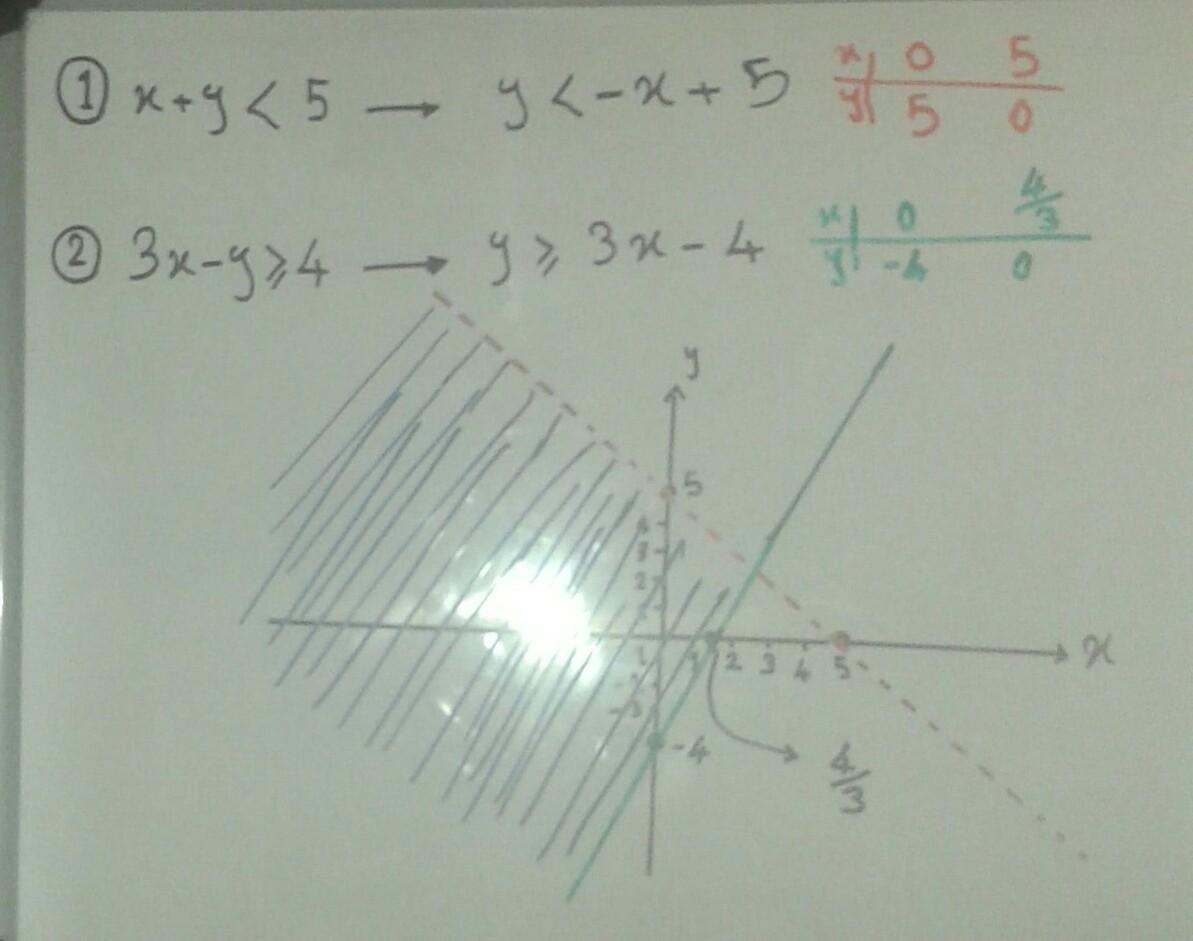 ① x+y < 5 → y < -x + 5
x | 0 5
y | 5 0
② 3x-y ≥ 4 → y ≥ 3x - 4
x | 0 4/3
y | -4 0
y
5
4
3
2
x
1 2 3 4 5
-4
4/3